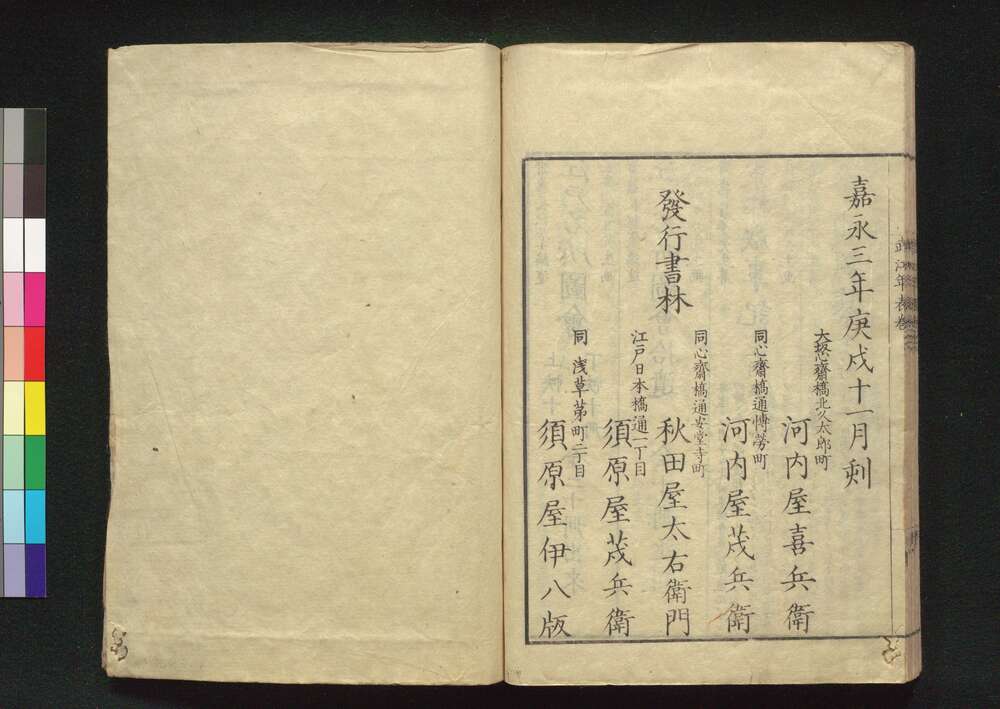 嘉永三年庚戌十一月刻
發行書林
大坂心齋橋北久太郎町
河内屋喜兵衛
同心齋橋通博勞町
河内屋茂兵衛
同心齋橋通安堂寺町
秋田屋太右衛門
江戸日本橋通一丁目
須原屋茂兵衛
同浅草茅町二丁目
須原屋伊八版